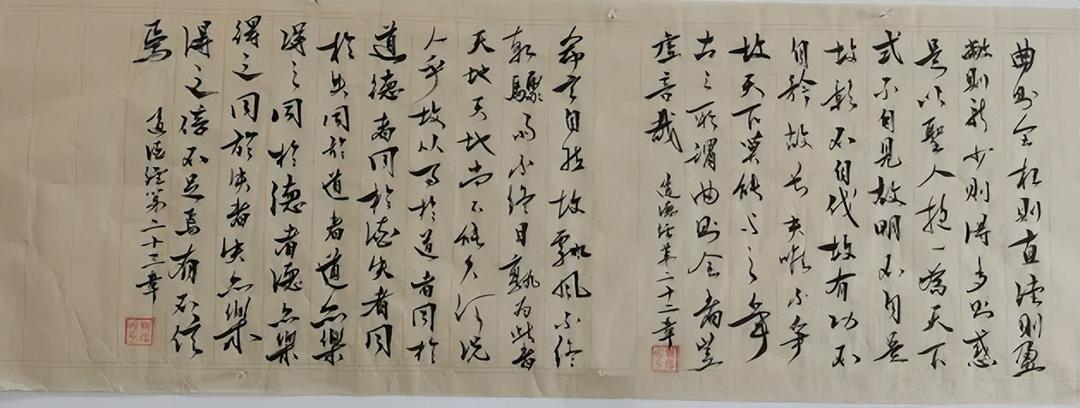 曲則全枉則直洼則盈
敝則新少則得多則惑
是以聖人抱一為天下
式不自見故明不自是
故彰不自伐故有功不
自矜故長夫唯不爭
故天下莫能与之爭
古之所謂曲則全者豈
虛言哉 道德經第二十二章
希言自然故飄風不終
朝驟雨不終日孰為此者
天地天地尚不能久而况
人乎故從事於道者同於
道德者同於德失者同
於失同於道者道亦樂
得之同於德者德亦樂
得之同於失者失亦樂
得之信不足焉有不信
焉 道德經第二十三章